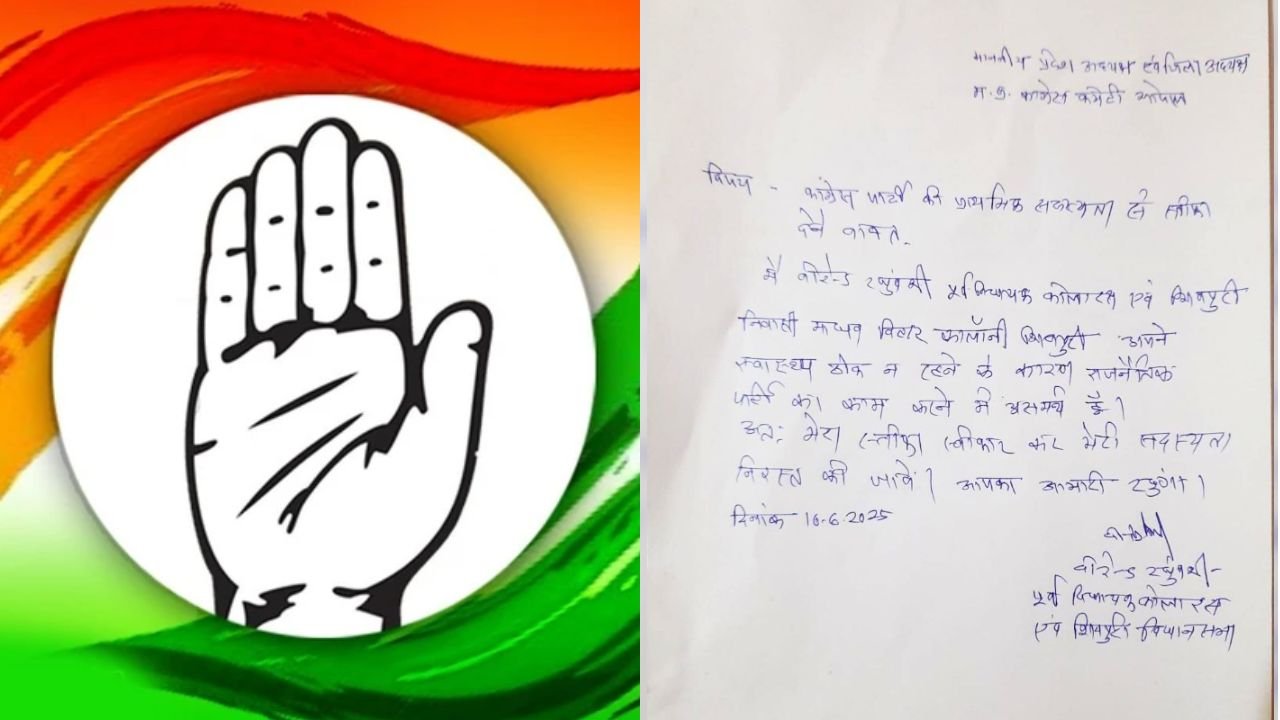 माननीय प्रदेश अध्यक्ष एवं जिला अध्यक्ष
म.प्र. कांग्रेस कमेटी भोपाल
विषय - कांग्रेस पार्टी की प्राथमिक सदस्यता से स्तीफा
देने बावत.
मैं वीरेन्द्र रघुवंशी पूर्व विधायक कोलारस एवं शिवपुरी
निवासी माधव विहार कॉलोनी शिवपुरी अपने
स्वास्थ्य ठीक न रहने के कारण राजनैतिक
पार्टी का काम करने में असमर्थ हूँ।
अतः मेरा स्तीफा स्वीकार कर मेरी सदस्यता
निरस्त की जावें। आपका आभारी रहूंगा।
दिनांक 16.6.2025
वीरेन्द्र रघुवंशी -
पूर्व विधायक कोलारस
एवं शिवपुरी विधानसभा